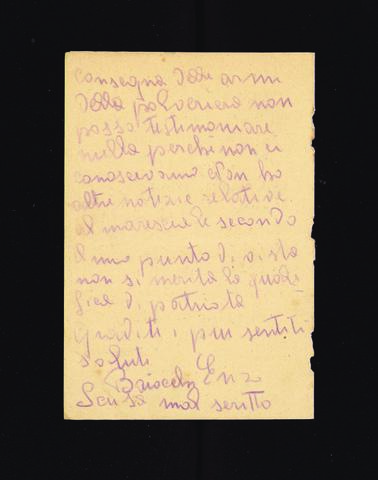 consegna delle armi
della polveriera non
posso testimoniare
nulla perché non ci
conoscevamo e non ho
altre notizie relative.
al maresciale secondo
il mio punto di vista
non si merita la quali-
fica di patriota
Graditi i piu sentiti
saluti
Enzo
Scusa mal scritto